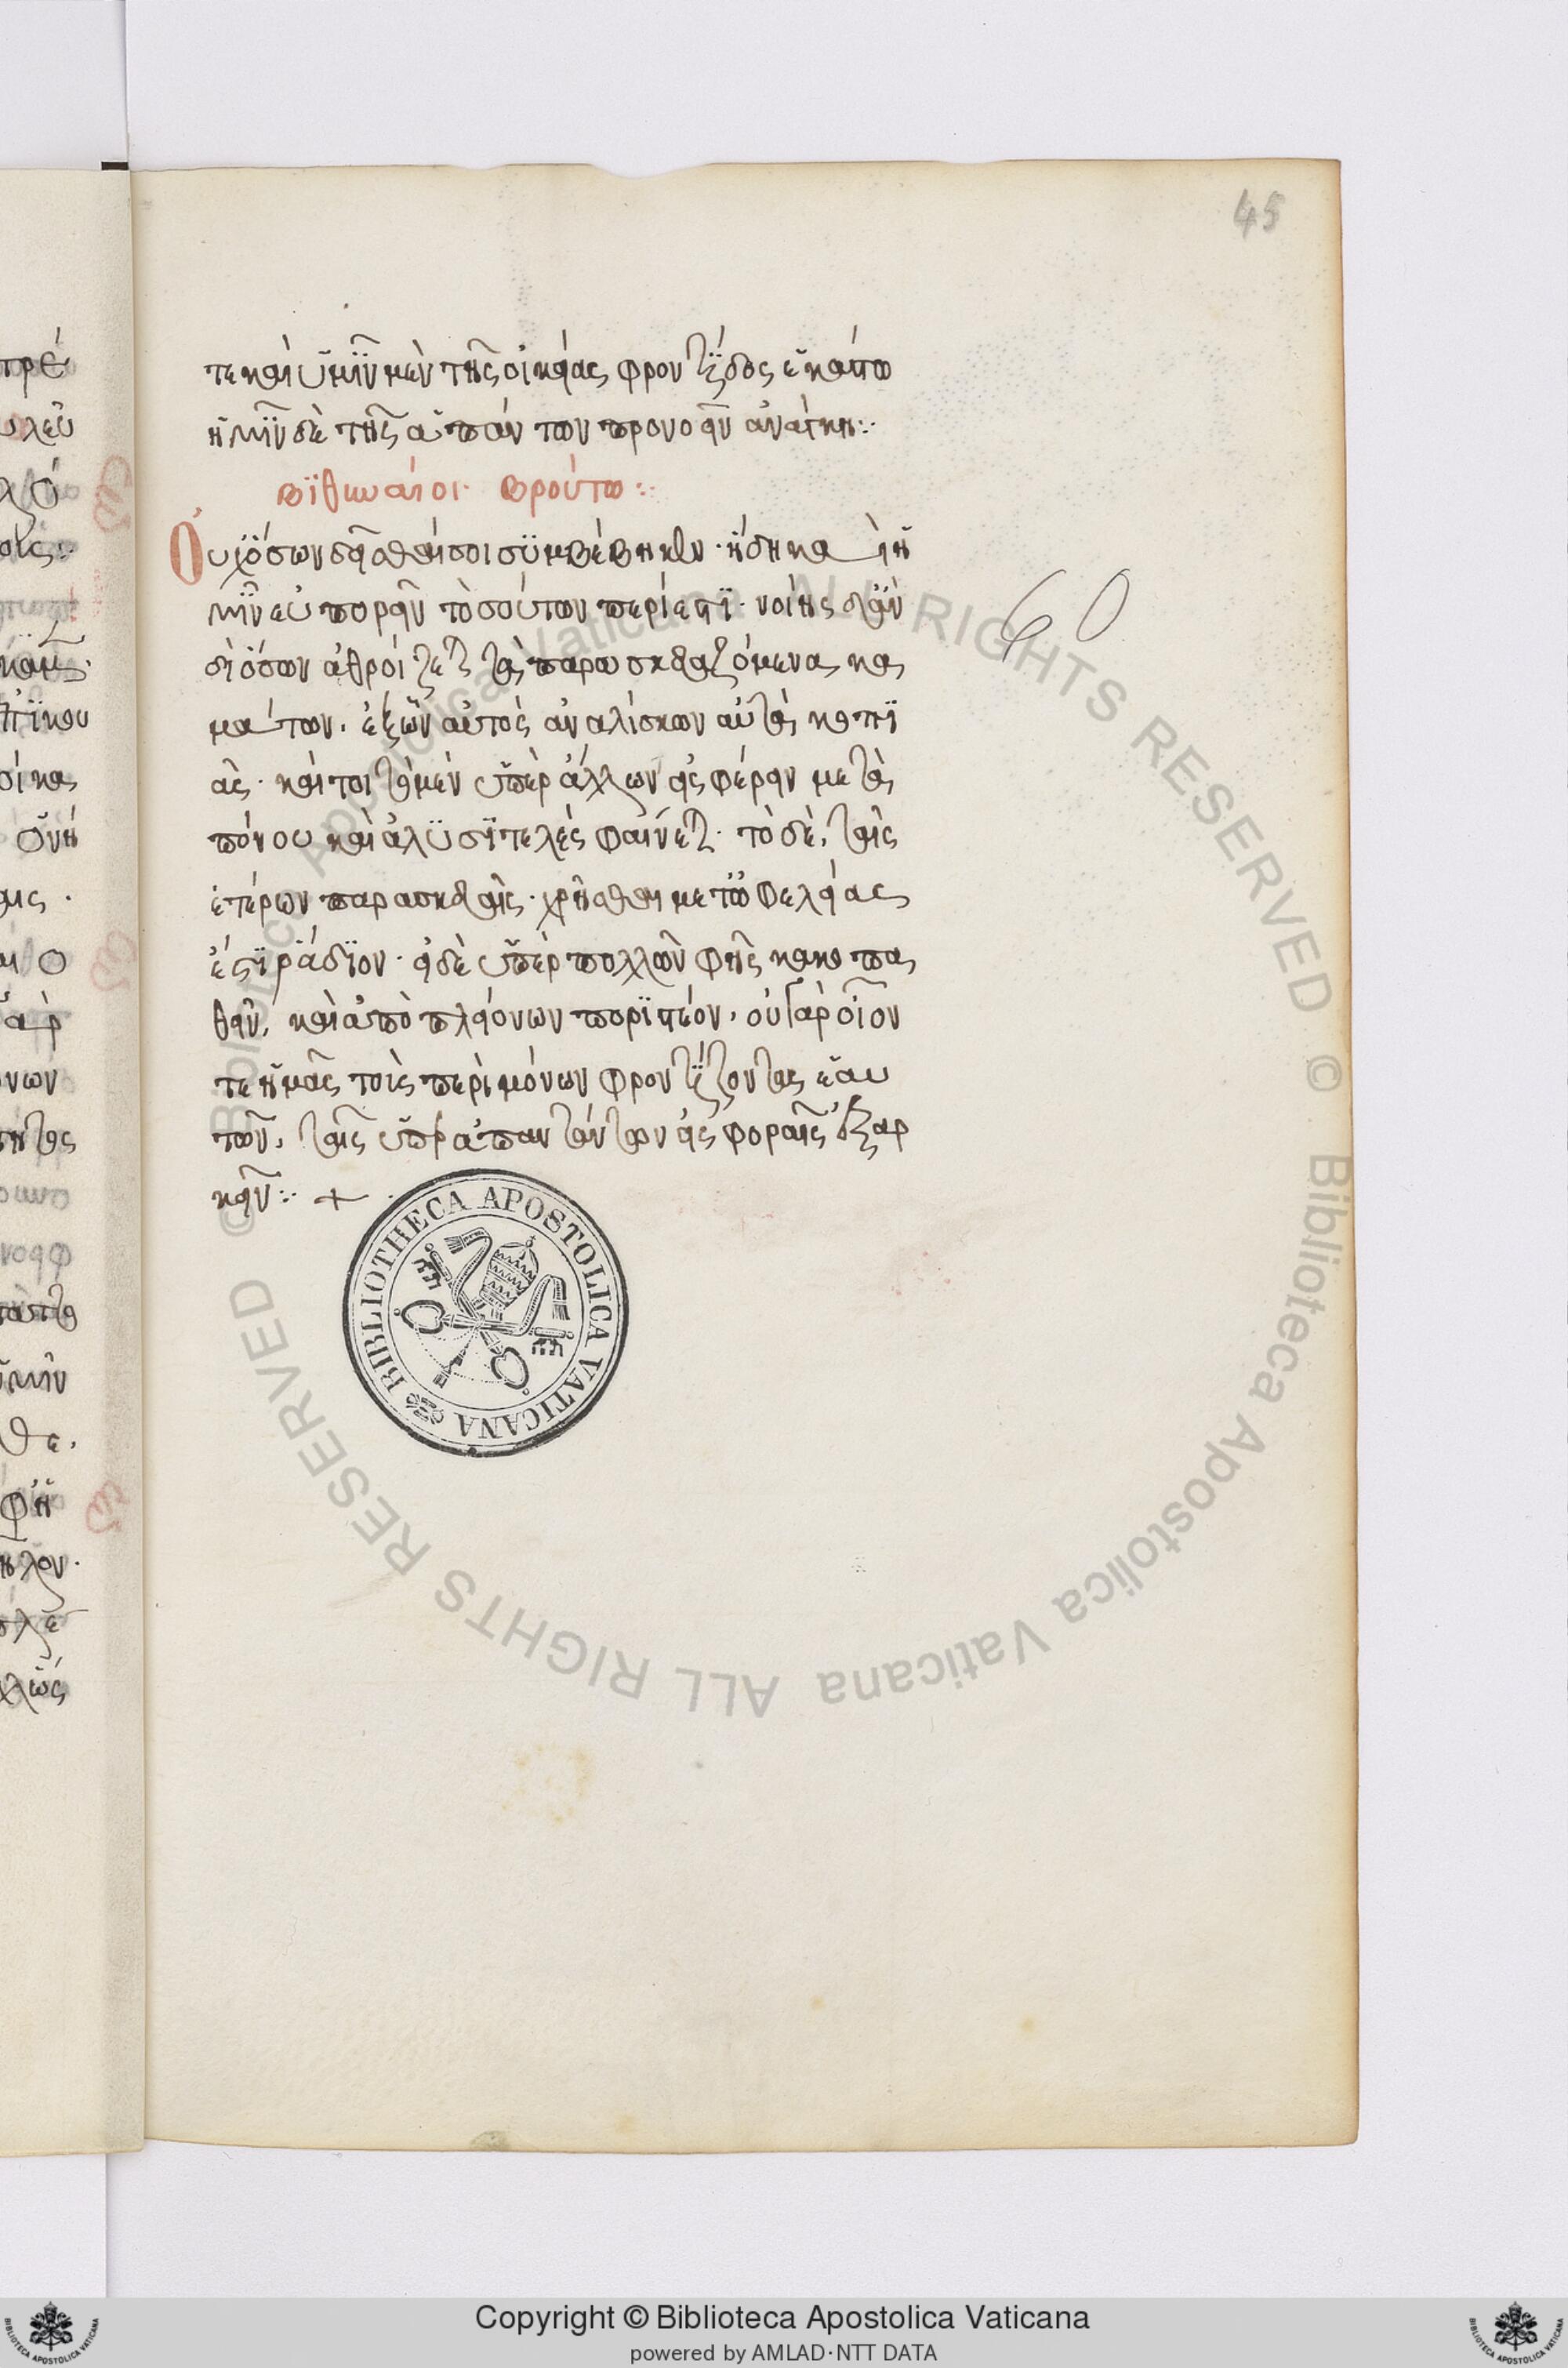 45
τε καὶ ὑμῖν μὲν τῆς οἰκείας φροντίδος ἑκάστω
ἡμῖν δὲ τῆς ἁπάντων προνοεῖν ἀνάγκη:·
Βιθυναίοι Βρούτω:·
Οὐχ ὅσων δεῖσθαί σοι συμβέβηκεν· ἤδη κα ὶ ἡ
μῖν εὐπορεῖν τοσούτων περίεστι· νοίης δ' ἂν
δι' ὅσων ἀθροίζεται τὰ παρασκευαζόμενα κα
μάτων, ἐξ ὧν αὐτὸς ἀναλίσκων αὐτὰ κοπι
ᾶς· καίτοι τὸ μὲν ὑπὲρ ἄλλων εἰσφέρειν μετὰ
πόνου καὶ ἀλυσιτελὲς φαίνεται· τὸ δὲ, ταῖς
ἑτέρων παρασκευαῖς· χρῆσθαι μετ' ὠφελείας
ἐστὶ ῥάδιον· εἰ δὲ ὑπὲρ πολλῶν φῆς κακοπα
θεῖν, καὶ ἀπὸ πλειόνων ποριστέον, οὐ γὰρ οἷόν
τε ἡμᾶς τοὺς περὶ μόνων φροντίζοντας ἑαυ
τῶν, ταῖς ὑπὲρ ἁπάντων τῶν εἰσφοραῖς ἐξαρ
κεῖν:· +
60
BIBLIOTHECA APOSTOLICA VATICANA
© Biblioteca Apostolica Vaticana ALL RIGHTS RESERVED © Biblioteca Apostolica Vaticana ALL RIGHTS RESERVED
Copyright © Biblioteca Apostolica Vaticana
powered by AMLAD·NTT DATA